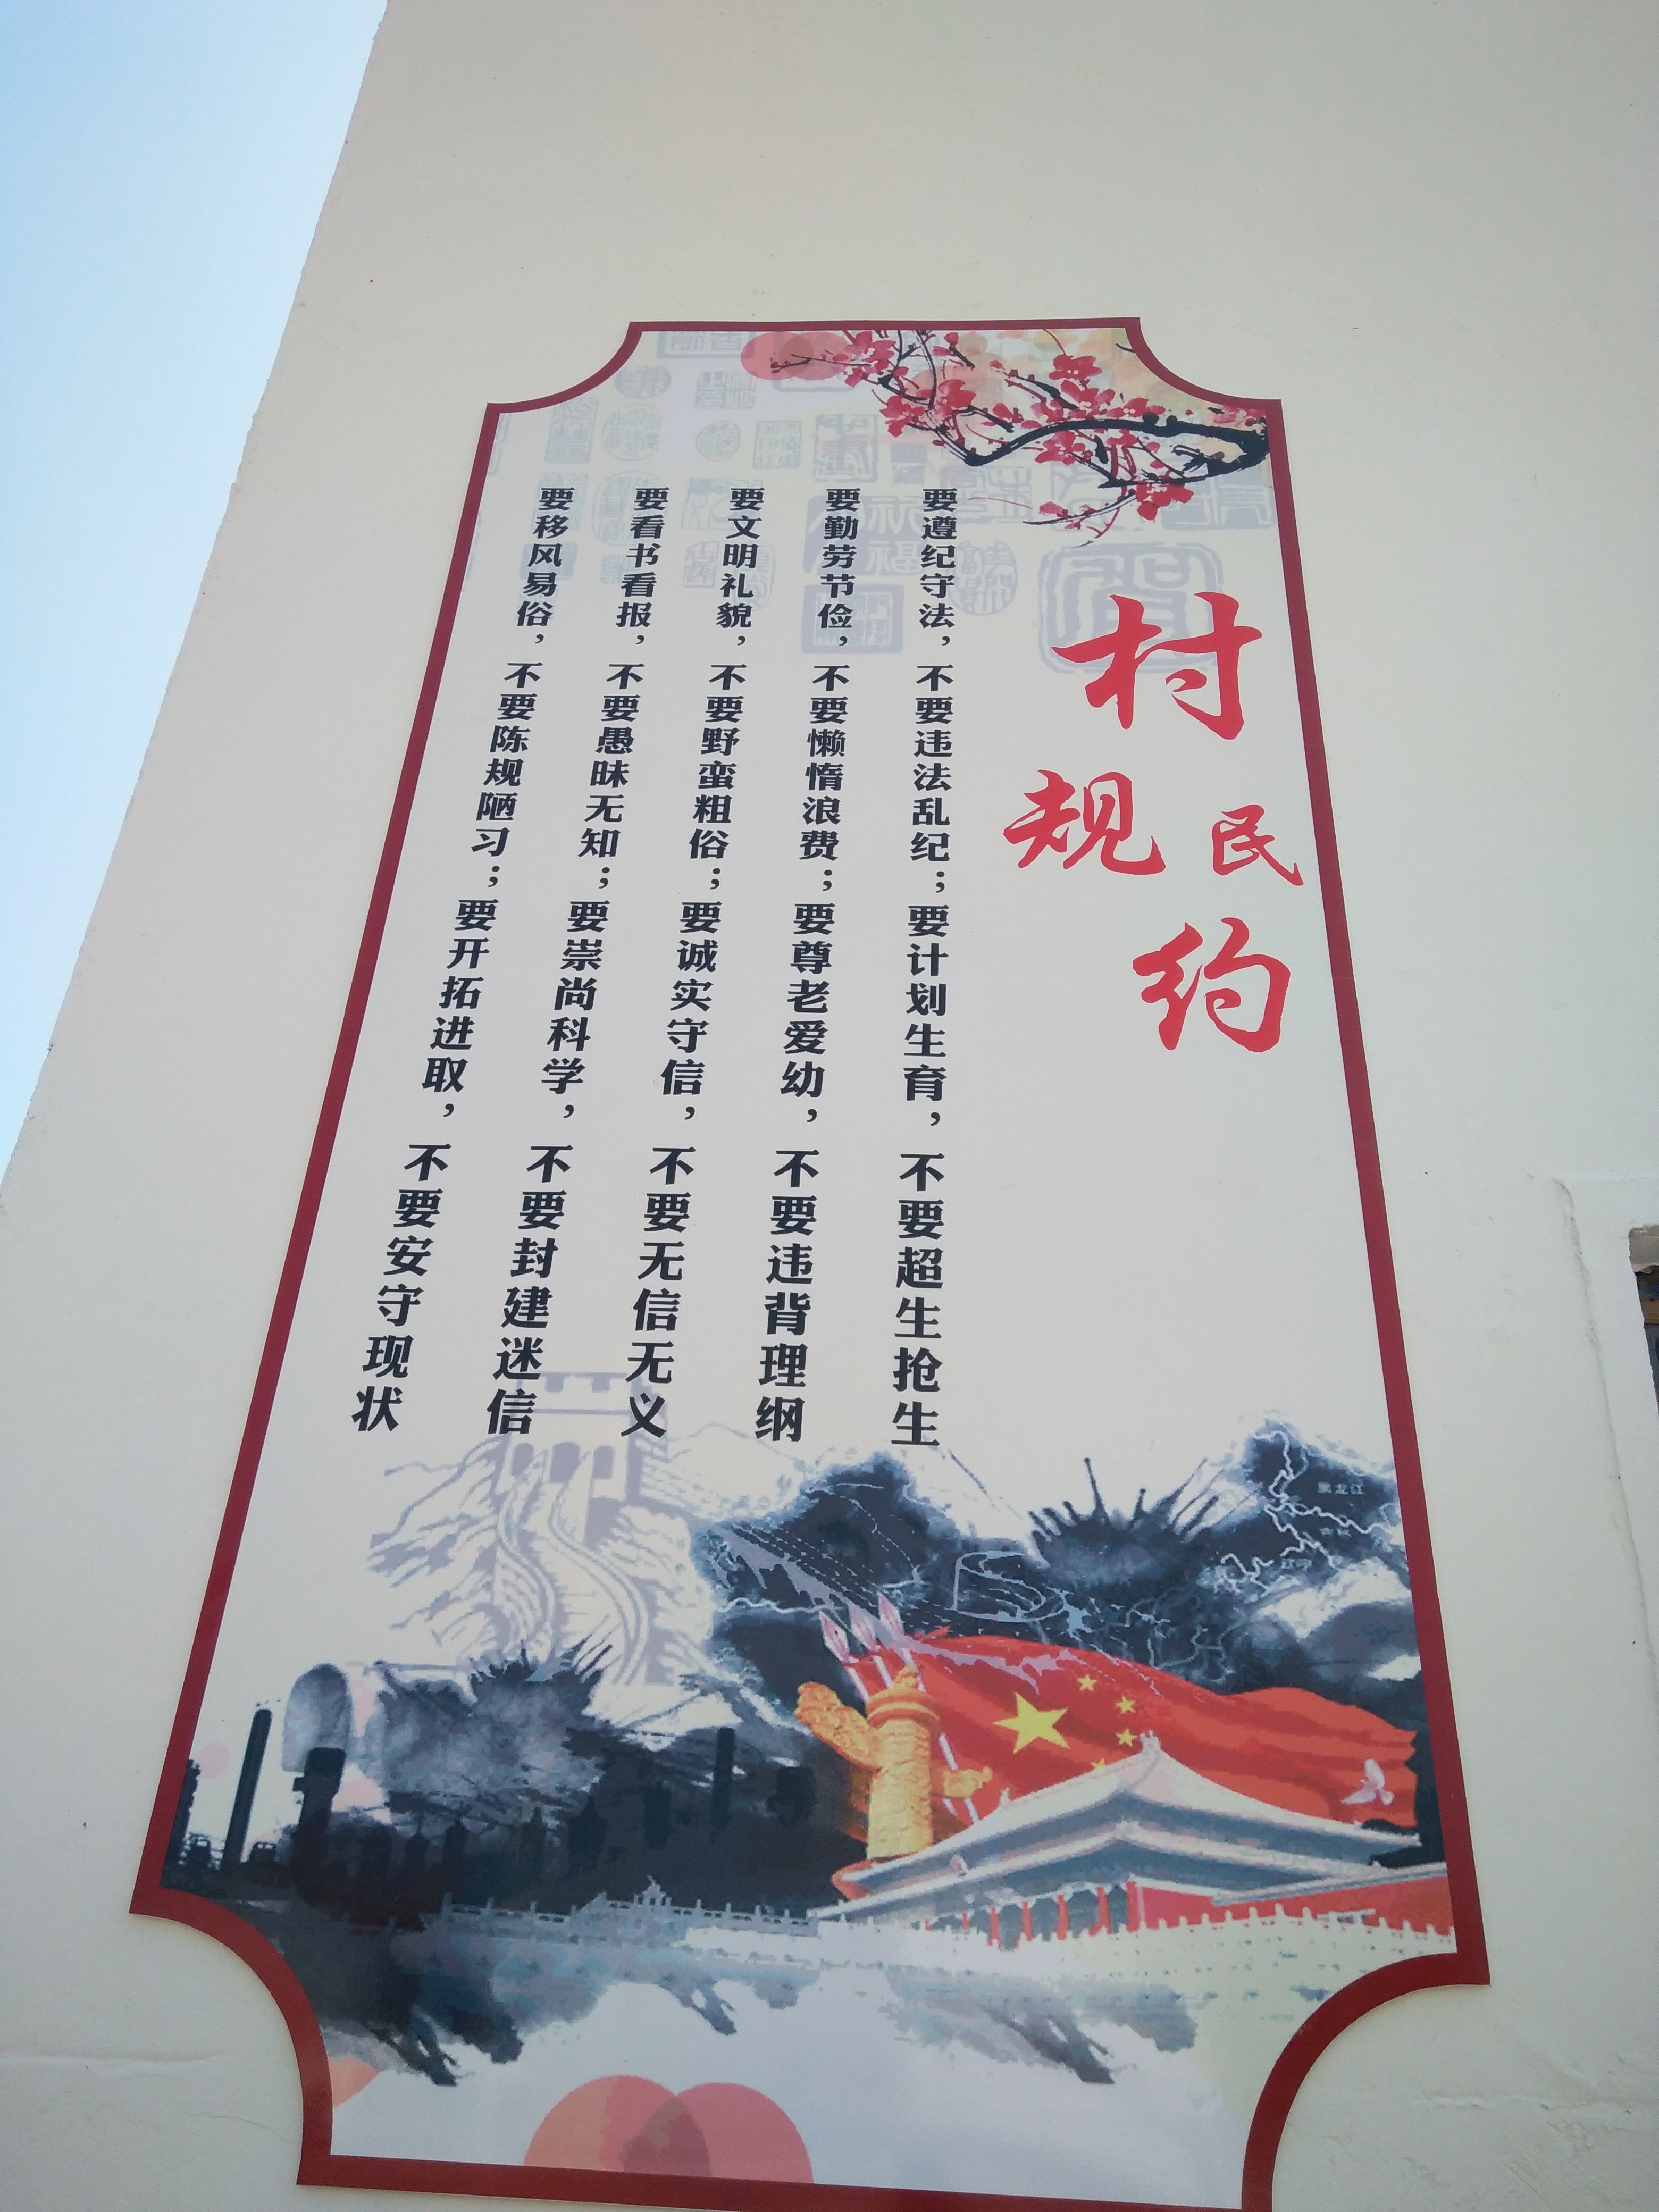 村规民约
要遵纪守法，不要违法乱纪；要计划生育，不要超生抢生
要勤劳节俭，不要懒惰浪费；要尊老爱幼，不要违背理纲
要文明礼貌，不要野蛮粗俗；要诚实守信，不要无信无义
要看书看报，不要愚昧无知；要崇尚科学，不要封建迷信
要移风易俗，不要陈规陋习；要开拓进取，不要安守现状
黑龙江